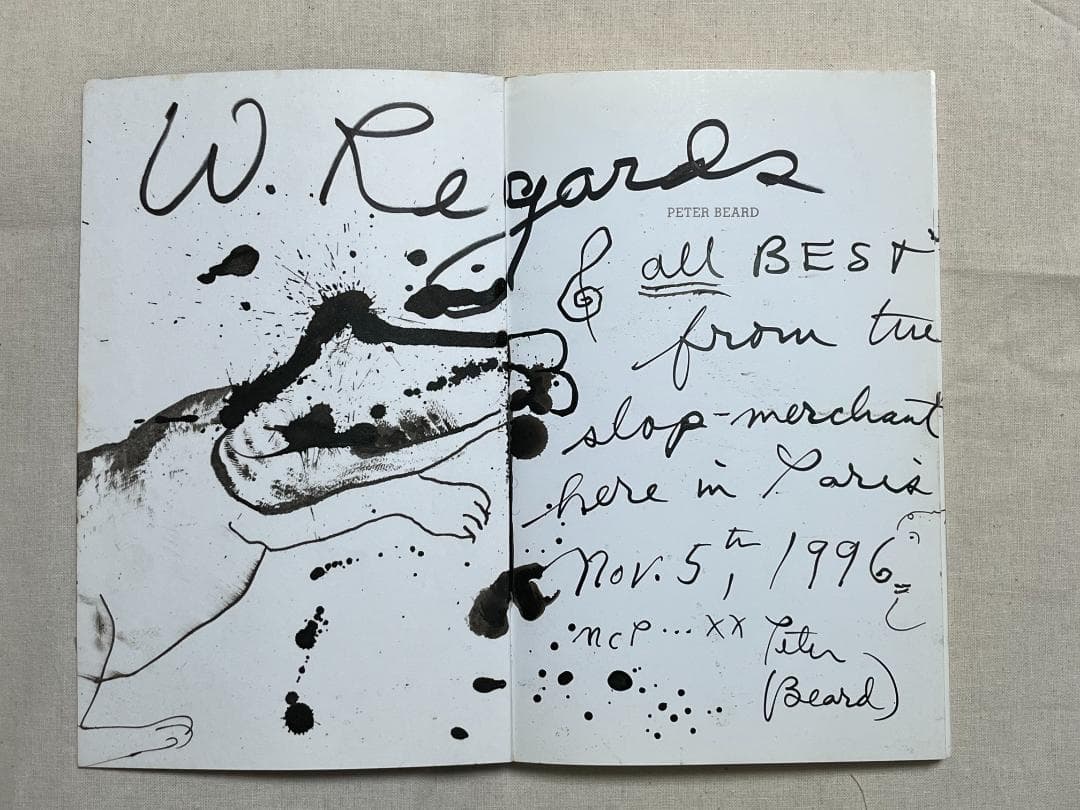 W. Regards
PETER BEARD
& all BEST
from the
slop-merchant
here in Paris
Nov. 5th, 1996
ncp... xx Peter
(Beard)